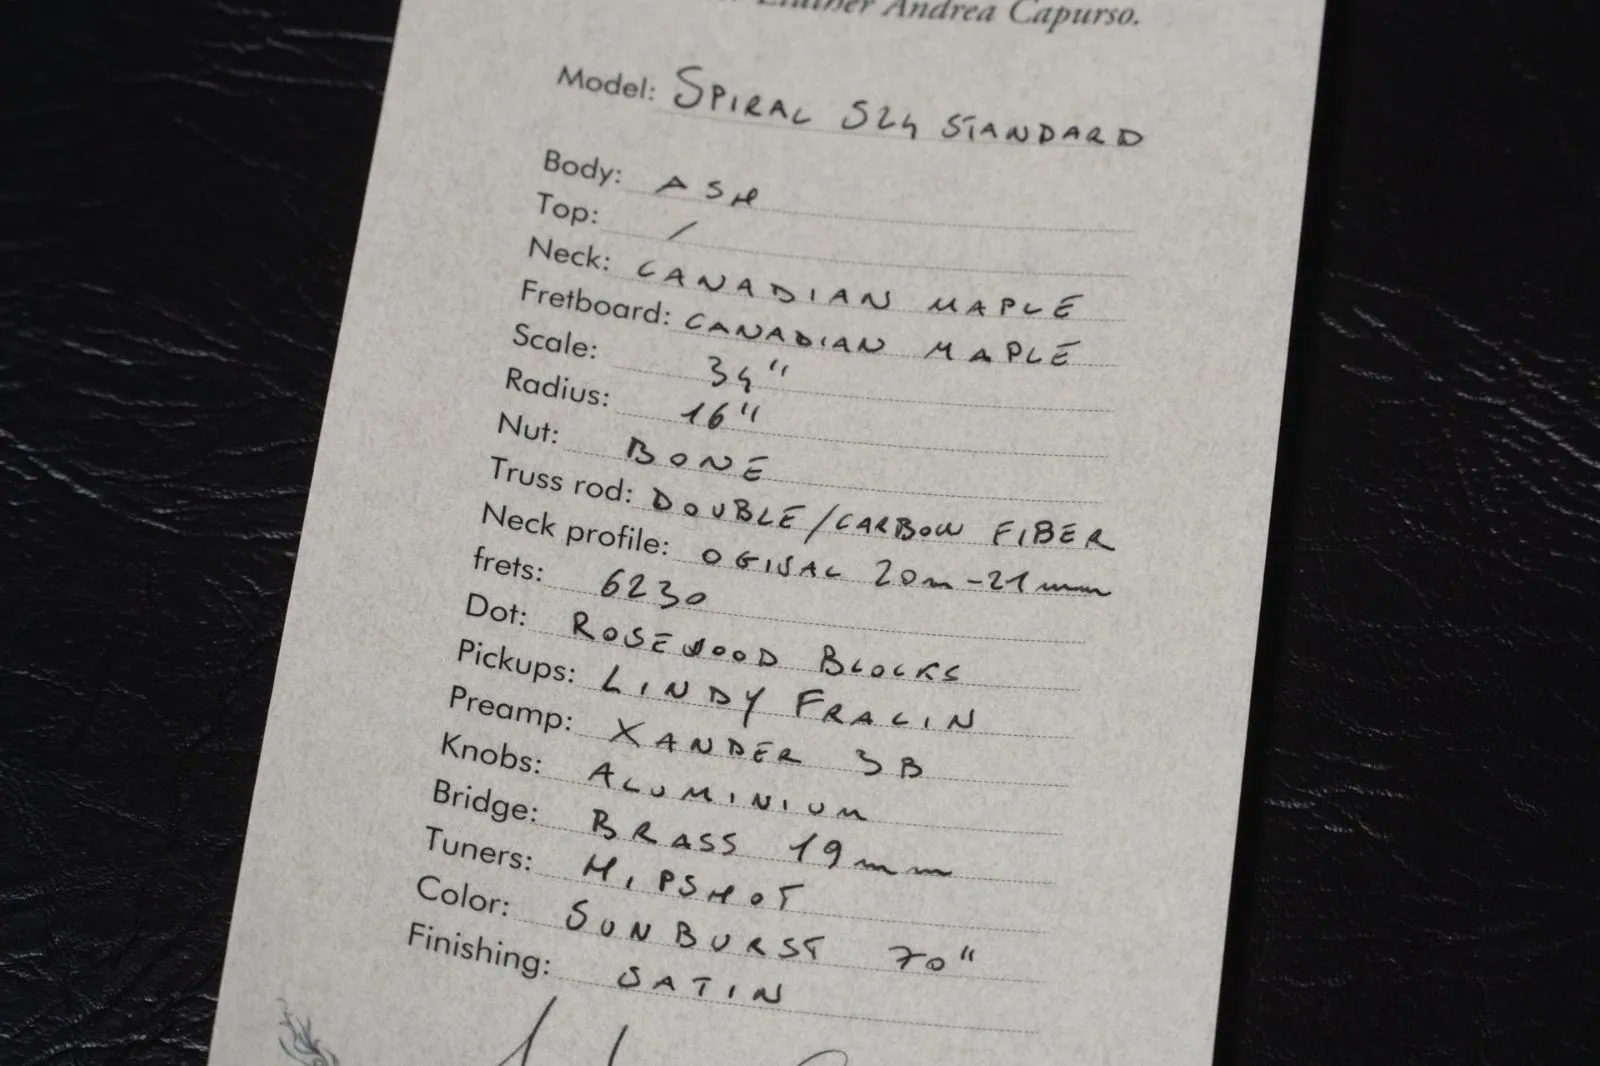 Andrea Capurso.
Model: SPIRAL S24 STANDARD
Body: ASH
Top: /
Neck: CANADIAN MAPLE
Fretboard: CANADIAN MAPLE
Scale: 34"
Radius: 16"
Nut: BONE
Truss rod: DOUBLE/CARBON FIBER
Neck profile: OGIVAL 20mm-21mm
frets: 6230
Dot: ROSEWOOD BLOCKS
Pickups: LINDY FRALIN
Preamp: XANDER 3B
Knobs: ALUMINIUM
Bridge: BRASS 19mm
Tuners: HIPSHOT
Color: SUNBURST 70"
Finishing: SATIN